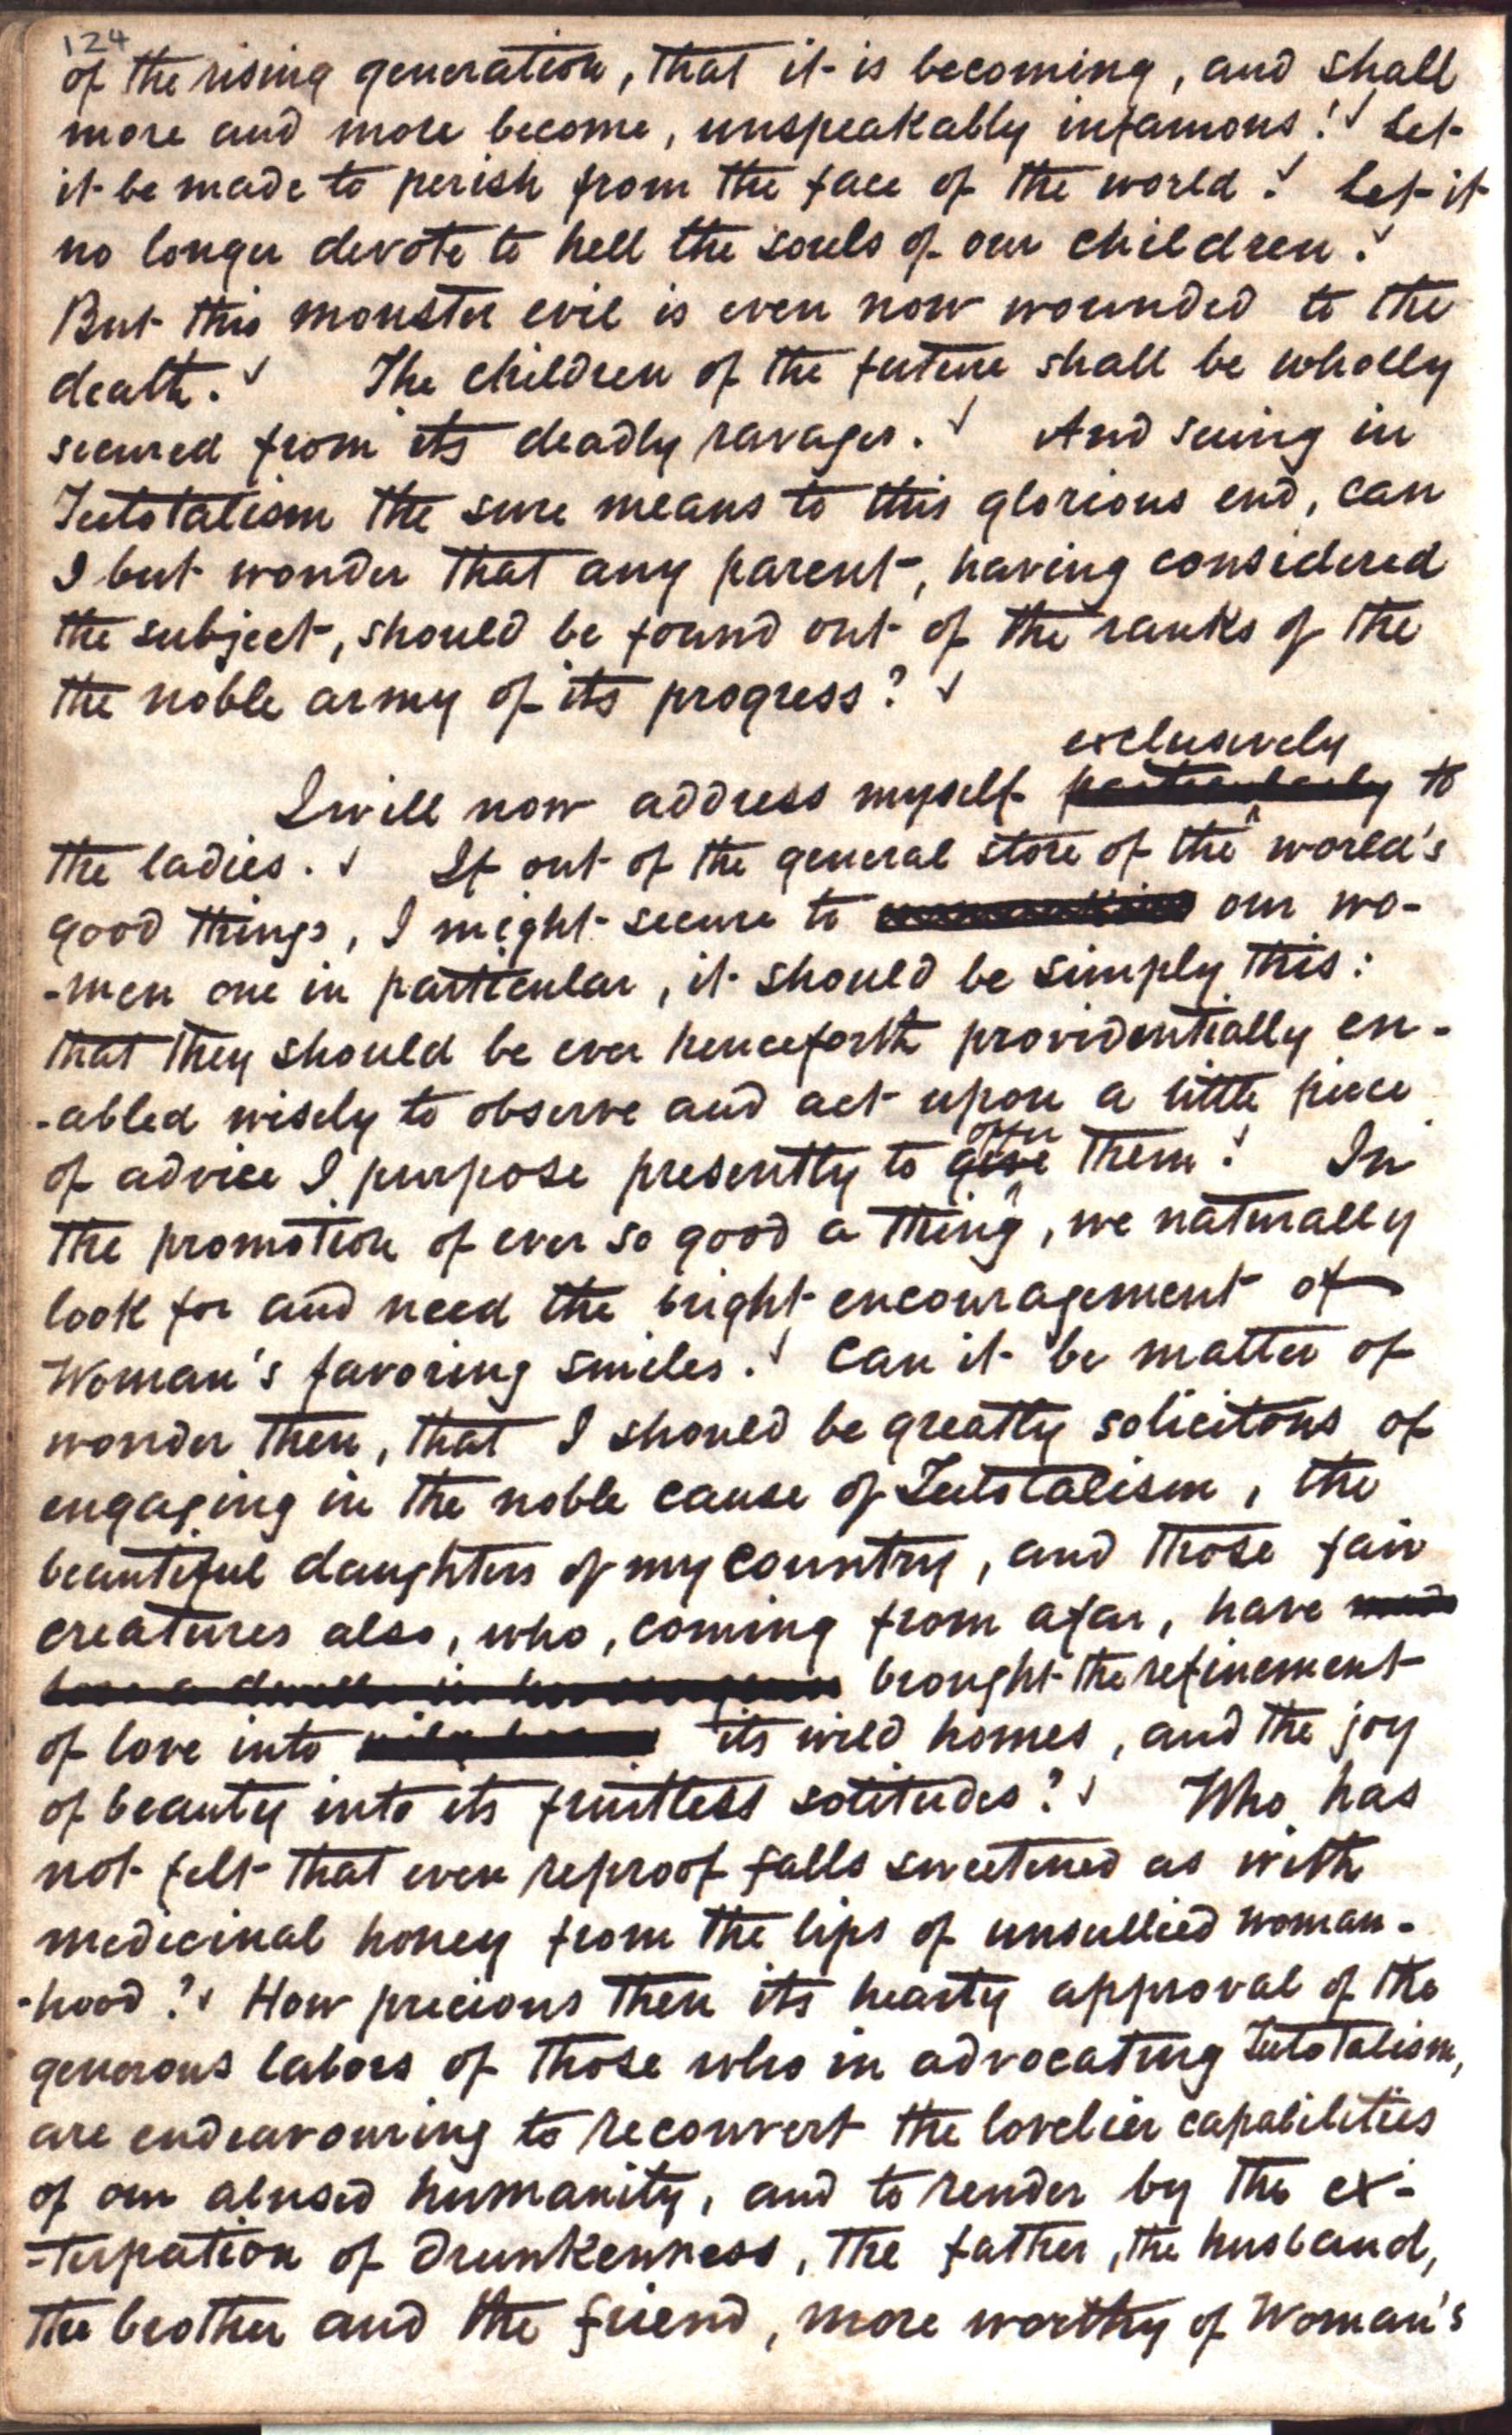 124
of the rising generation, that it is becoming, and shall
more and more become, unspeakably infamous!✓ Let
it be made to perish from the face of the world!✓ Let it
no longer devote to hell the souls of our children!✓
But this monster evil is even now wounded to the
death.✓ The children of the future shall be wholly
secured from its deadly ravages.✓ And seeing in
Teetotalism the sure means to this glorious end, can
I but wonder that any parent, having considered
the subject, should be found out of the ranks of the
the noble army of its progress?✓
exclusively
I will now address myself particularly to
the ladies.✓ If out of the general store of the world's
good things, I might secure to our wo-
-men one in particular, it should be simply this:
that they should be ever henceforth providentially en-
-abled wisely to observe and act upon a little piece
offer
of advice I purpose presently to give them!✓ In
the promotion of ever so good a thing, we naturally
look for and need the bright encouragement of
Woman's favoring smiles.✓ Can it be matter of
wonder then, that I should be greatly solicitous of
engaging in the noble cause of Teetotalism, the
beautiful daughters of my country, and those fair
creatures also, who, coming from afar, have made
brought the refinement
of love into its wild homes, and the joy
of beauty into its fruitless solitudes?✓ Who has
not felt that even reproof falls sweetened as with
medicinal honey from the lips of unsullied woman-
-hood?✓ How precious then its hearty approval of the
generous labors of those who in advocating Teetotalism,
are endeavouring to reconvert the lovelier capabilities
of our abused humanity, and to render by the ex-
-tirpation of Drunkenness, the father, the husband,
the brother and the friend, more worthy of Woman's